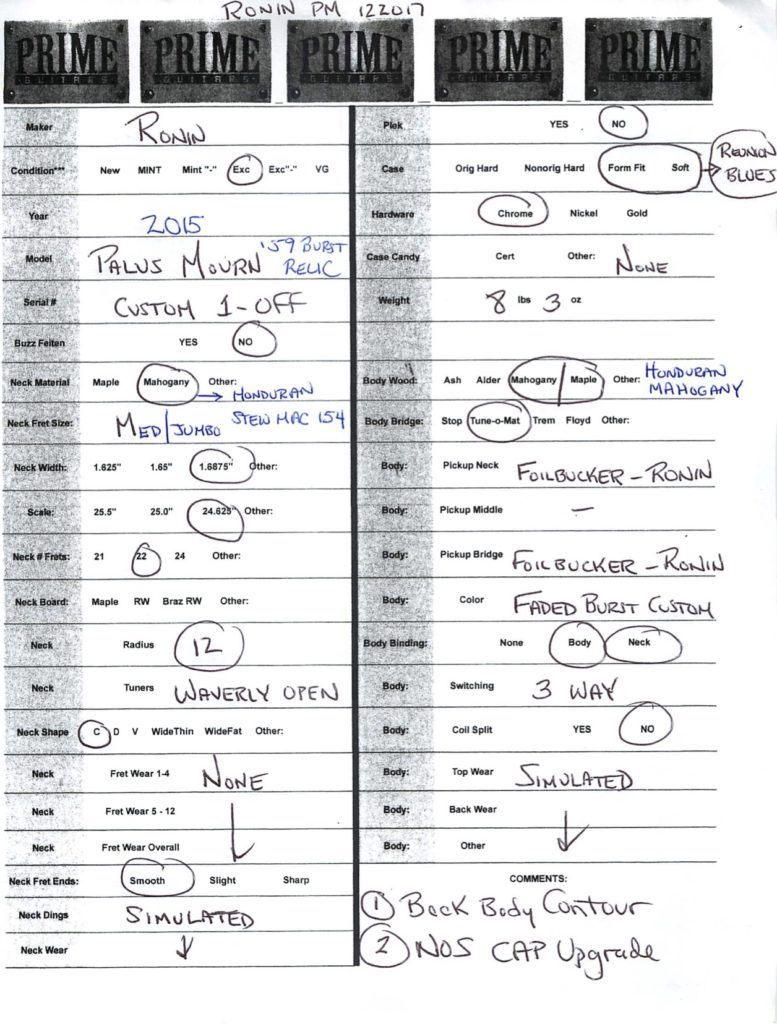 RONIN PM 122017
PRIME GUITARS PRIME GUITARS PRIME GUITARS PRIME GUITARS PRIME GUITARS
Maker RONIN
Condition*** New MINT Mint "-" Exc Exc"-" VG
Year 2015
Model PALUS MOURN '59 BURST RELIC
Serial # CUSTOM 1-OFF
Buzz Feiten YES NO
Neck Material Maple Mahogany Other: → HONDURAN
Neck Fret Size: MED/JUMBO STEW MAC 154
Neck Width: 1.625" 1.65" 1.6875" Other:
Scale: 25.5" 25.0" 24.625" Other:
Neck # Frets: 21 22 24 Other:
Neck Board: Maple RW Braz RW Other:
Neck Radius 12
Neck Tuners WAVERLY OPEN
Neck Shape C D V WideThin WideFat Other:
Neck Fret Wear 1-4 NONE
Neck Fret Wear 5 - 12
Neck Fret Wear Overall
Neck Fret Ends: Smooth Slight Sharp
Neck Dings SIMULATED
Neck Wear
Plek YES NO
Case Orig Hard Nonorig Hard Form Fit Soft → REUNION BLUES
Hardware Chrome Nickel Gold
Case Candy Cert Other: NONE
Weight 8 lbs 3 oz
Body Wood: Ash Alder Mahogany Maple Other: HONDURAN MAHOGANY
Body Bridge: Stop Tune-o-Mat Trem Floyd Other:
Body: Pickup Neck FOILBUCKER - RONIN
Body: Pickup Middle -
Body: Pickup Bridge FOILBUCKER - RONIN
Body: Color FADED BURST CUSTOM
Body Binding: None Body Neck
Body: Switching 3 WAY
Body: Coil Split YES NO
Body: Top Wear SIMULATED
Body: Back Wear
Body: Other
COMMENTS:
① Back Body Contour
② NOS CAP Upgrade